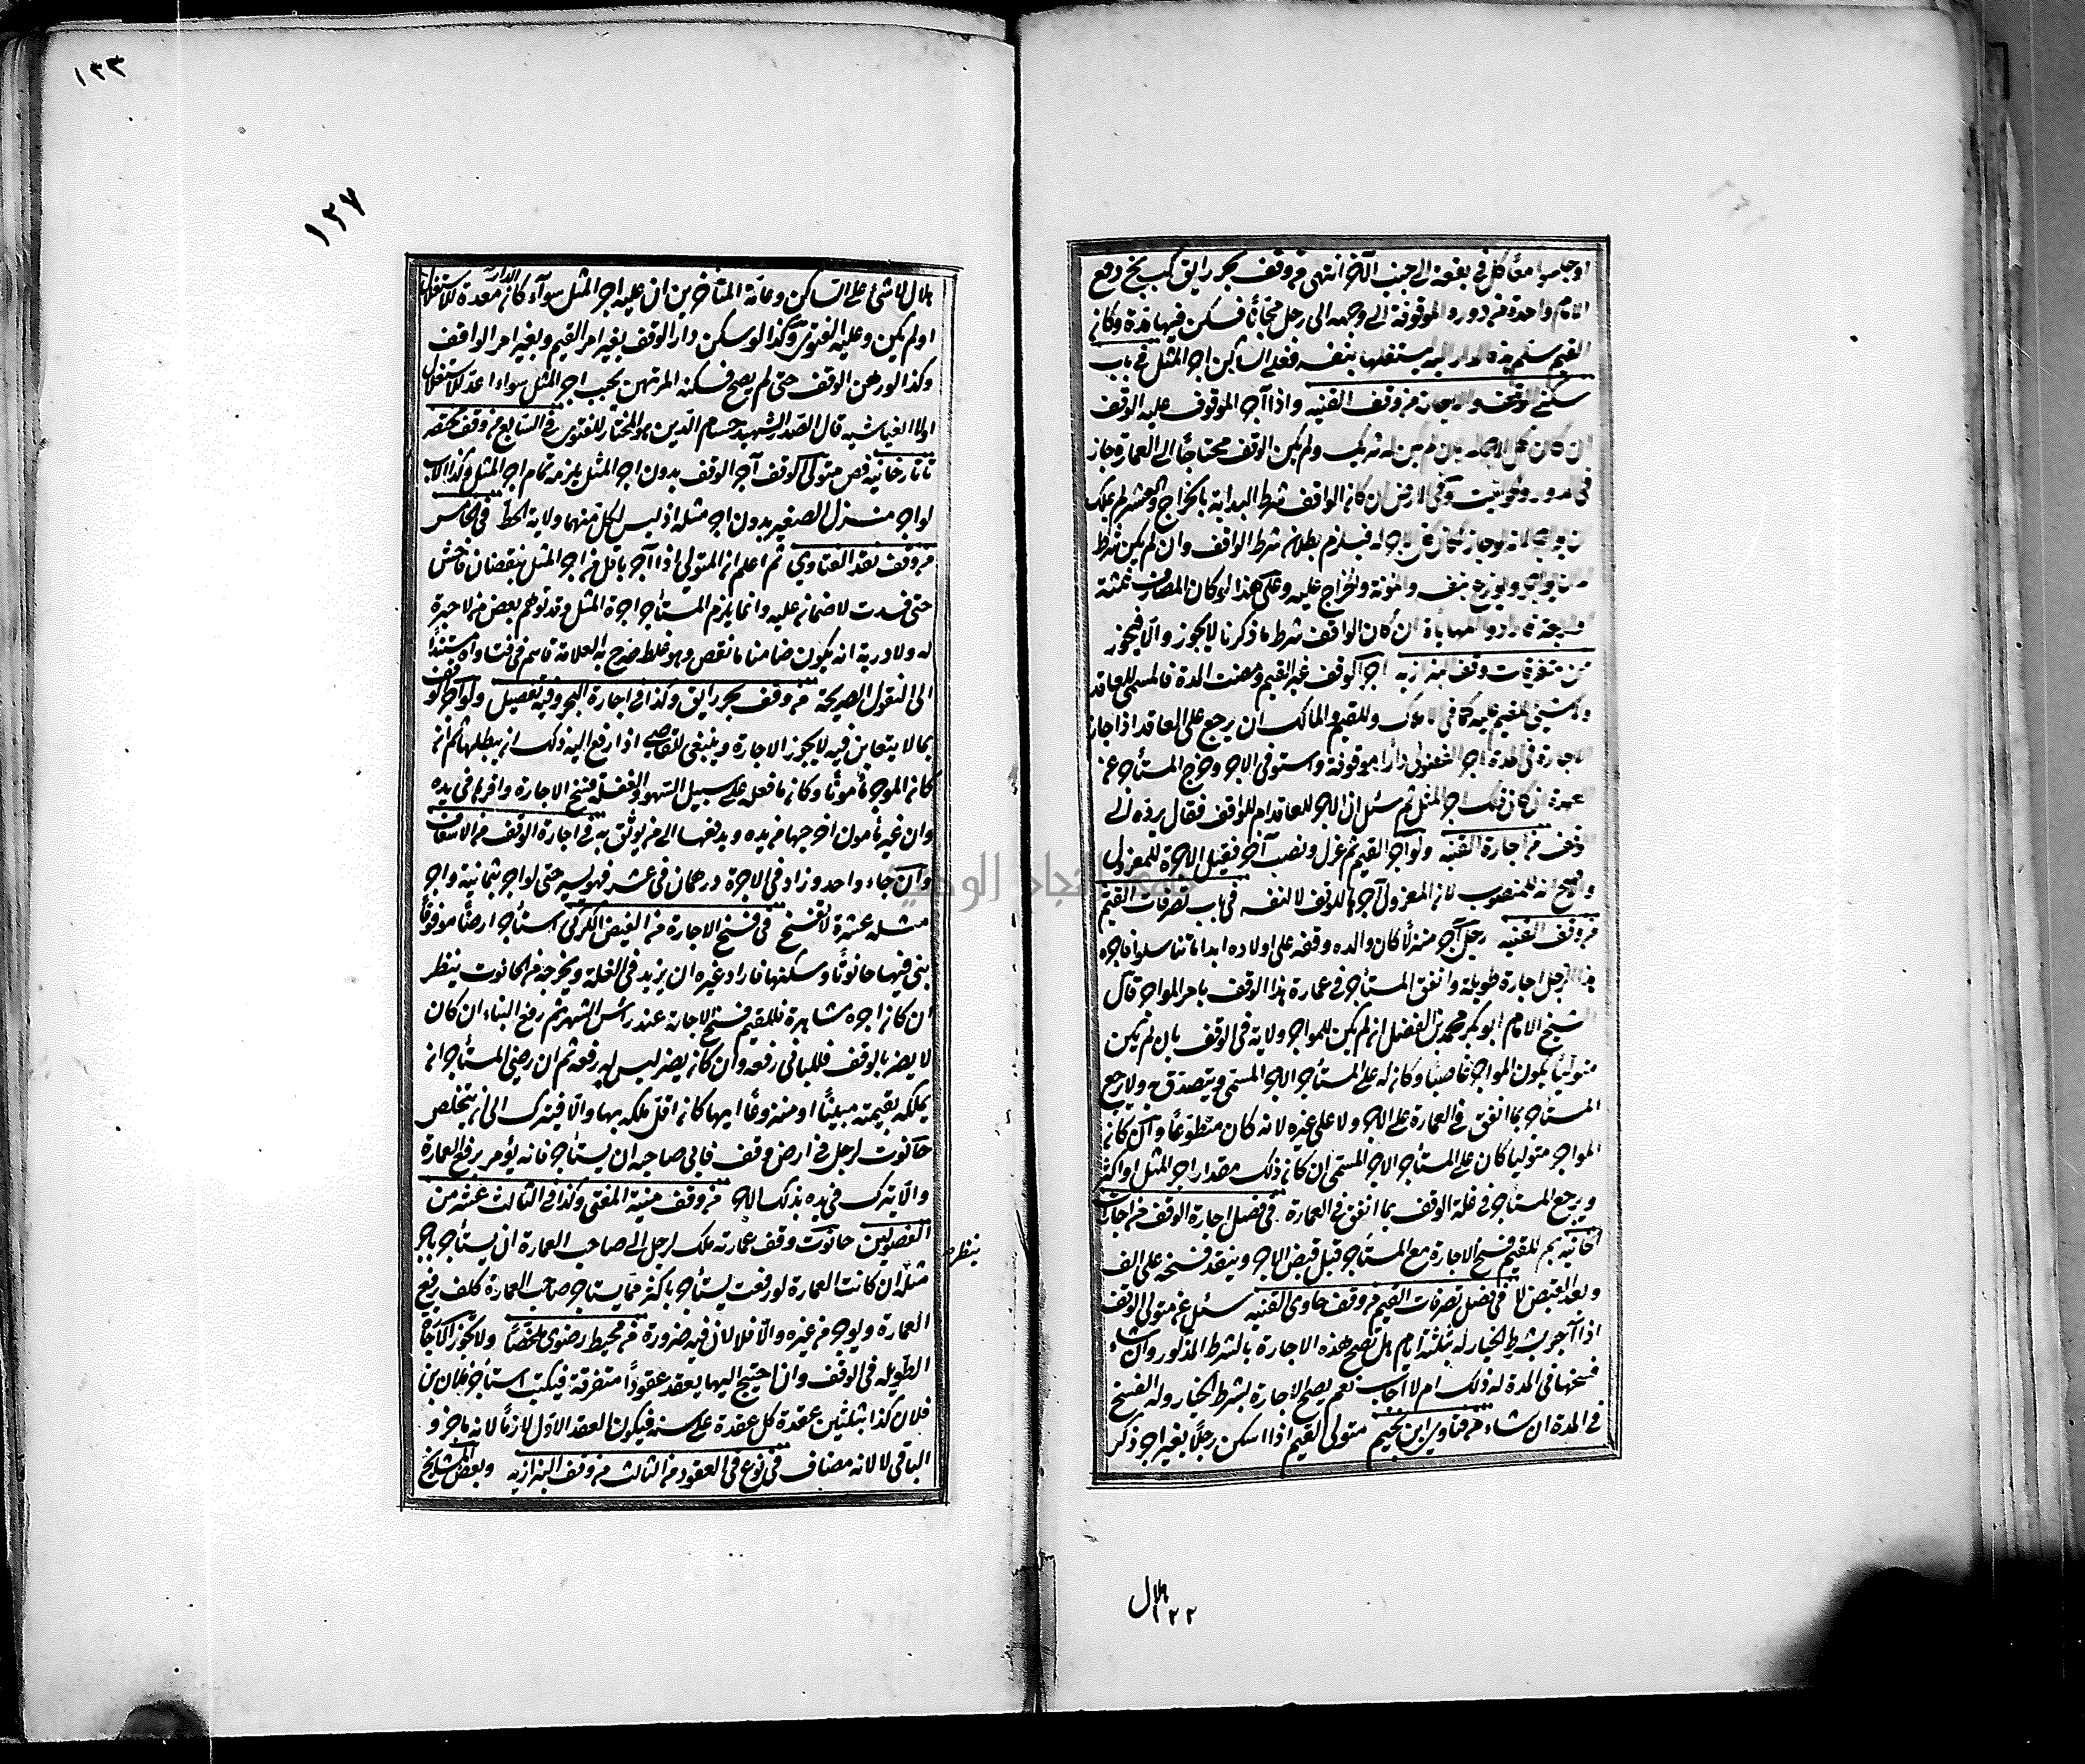 او جلسوا معا كل في بقعة الى جنب الآخر انتهى من وقف بحر رايق كسب شخ دفع
الامام واحدة من دور الموقوفة الى وجهه الى رجل مجانا فسكن فيها مدة وكان
القيم سلم هذه الدار اليه يستغلها بنفسه فعلى الساكن اجر المثل في باب
سكنى الوقف والاجارة من وقف القنيه واذا آجر الموقوف عليه الوقف
ان كان كل الاجر له بان لم يكن له شريك ولم يكن الوقف محتاجا الى العمارة جاز
في الدور والحوانيت وفي الارض ان كان الواقف شرط البداية بالخراج والعشر لم يملك
ان يواجر لانه لو جاز كان كل الاجر له فيلزم بطلان شرط الواقف وان لم يكن شرط
له ان يواجر ويزرع بنفسه والمونة والخراج عليه وعلى هذا لو كان المصارف ثلثة
او اربعة فارادوا المهاياة ان كان الواقف شرط ما ذكرنا لا يجوز والا فيجوز
من متفرقات وقف البزازيه اجر الوقف غير القيم ومضت المدة فالمسمى للعاقد
ولا شئ للقيم عليه كما في الاملاك وللقيم والمالك ان يرجع على العاقد اذا اجاز
الاجارة في المدة اجر الفضولى دارا موقوفة واستوفى الاجر وخرج المستأجر عن
العهدة ان كان ذلك اجر المثل ثم سئل ان الاجر للعاقد ام للواقف فقال يرده الى
الوقف من اجارة القنيه ولو آجر القيم ثم عزل ونصب آخر فقيل الاجرة للمعزول
والاصح انه للمنصوب لان المعزول آجرها للوقف لا لنفسه في باب تصرفات القيم
من وقف القنيه رجل آجر منزلا كان والده وقفه على اولاده ابدا ما تناسلوا فاجره
هذا الرجل اجارة طويلة وانفق المستأجر في عمارة هذا الوقف بامر المواجر قال
الشيخ الامام ابو بكر محمد بن الفضل ان لم يكن للمواجر ولاية في الوقف بان لم يكن
متوليا يكون المواجر غاصبا وكان له على المستأجر الاجر المسمى ويتصدق به ولا يرجع
المستأجر بما انفق في العمارة على الاجر ولا على غيره لانه كان متطوعا وان كان
المواجر متوليا كان على المستأجر الاجر المسمى ان كان ذلك مقدار اجر المثل او اكثر
ويرجع المستأجر في غلة الوقف بما انفق في العمارة في فصل اجارة الوقف من اجارات
الخانيه للقيم فسخ الاجارة مع المستأجر قبل قبض الاجر وينفذ فسخه على الوقف
وبعد القبض لا في فصل تصرفات القيم من وقف حاوى القنيه سئل عن متولى الوقف
اذا آجر بشرط الخيار له ثلثة ايام هل تصح هذه الاجارة بالشرط المذكور وان شاء
فسخها في المدة له ذلك ام لا اجاب نعم يصح الاجارة بشرط الخيار وله الفسخ
في المدة ان شاء من فتاوى ابن نجيم متولى القيم اذا اسكن رجلا بغير اجر ذكر
هلال
١٢٢
١٣٣
١٢٧
هلال لا شئ على الساكن وعامة المتأخرين ان عليه اجر المثل سوآء كانت الدار معدة للاستغلال
او لم يكن وعليه الفتوى وكذا لو سكن دار الوقف بغير امر القيم وبغير امر الواقف
وكذا لو رهن الوقف حتى لم يصح فسكنه المرتهن يجب اجر المثل سواء اعد للاستغلال
او لا الغياثيه قال الصدر الشهيد حسام الدين هو المختار للفتوى في السابع من وقف مختصر
تاتارخانيه متولى الوقف آجر الوقف بدون اجر المثل يلزمه تمام اجر المثل وكذا الاب
لو اجر منزل الصغير بدون اجر مثله اذ ليس لكل منهما ولاية الحط في الخامس
من وقف نقد الفتاوي ثم اعلم ان المتولى اذا آجر باقل من اجر المثل بنقصان فاحش
حتى فسدت لا ضمان عليه وانما يلزم المستأجر اجرة المثل وقد توهم بعض من لا خبرة
له ولا درية انه يكون ضامنا ما نقص وهو غلط صرح به العلامة قاسم في فتاواه مستندا
الى النقول الصريحة من وقف بحر رايق وكذا في اجارة البحر وفيه تفصيل ولو آجر الوقف
بما لا يتغابن فيه لا يجوز الاجارة وينبغى للقاضى اذا رفع اليه ذلك ان يبطلها ثم ان
كان المواجر مأمونا وكان ما فعله على سبيل السهو والغفلة فسخ الاجارة واقرها في يده
وان غير مأمون اخرجها من يده ويدفعها الى من يوثق به في اجارة الوقف من الاسعاف
وان جاء واحد وزاد في الاجرة درهمان في عشر فهو يسير حتى لو اجر بثمانية واجر
مثله عشرة لا تفسخ في فسخ الاجارة من الفيض الكركى استأجر ارضا موقوفا
بنى فيها حانوتا وسكنها فاراد غيره ان يزيد في الغلة ويخرجه من الحانوت ينظر
ان كان اجره مشاهرة فللقيم فسخ الاجارة عند رأس الشهر ثم رفع البناء ان كان
لا يضر بالوقف فللبانى رفعه وان كان يضر ليس له رفعه ثم ان رضى المستأجر ان
يملكه بقيمته مبنيا او منزوعا ايها كان اقل يملكه بها والا فيترك الى ان يتخلص
حانوت لرجل في ارض وقف فابى صاحبه ان يستأجر فانه يؤمر برفع العمارة
والا يترك في يده بذلك الاجر من وقف منية المفتى وكذا في الثالث عشر من
الفصولين حانوت وقف عمارته ملك لرجل الى صاحب العمارة ان يستأجر باجر
ينظر
مثله ان كانت العمارة لو رفعت يستأجر باكثر مما يستأجر صاحب العمارة كلف رفع
العمارة ويواجر من غيره والا فلا لان فيه ضرورة من محيط رضوى ملخصا ولا تجوز الاجارة
الطويلة في الوقف وان احتيج اليها يعقد عقودا متفرقة فيكتب استأجر فلان بن
فلان كذا بثلثين عقدة كل عقدة على سنة فيكون العقد الاول لازما لانه ناجز و
الباقى لا لانه مضاف في نوع في العقود من الثالث من وقف البزازيه وبعض المشايخ